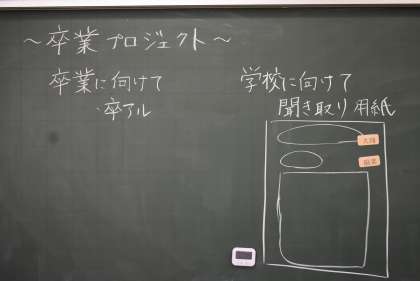 ～卒業プロジェクト～
卒業に向けて
・卒アル
学校に向けて
聞き取り用紙